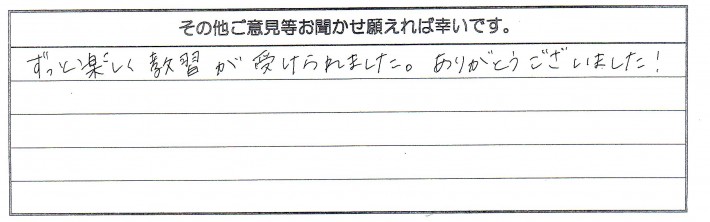 その他ご意見等お聞かせ願えれば幸いです。
ずっと楽しく教習が受けられました。ありがとうございました！